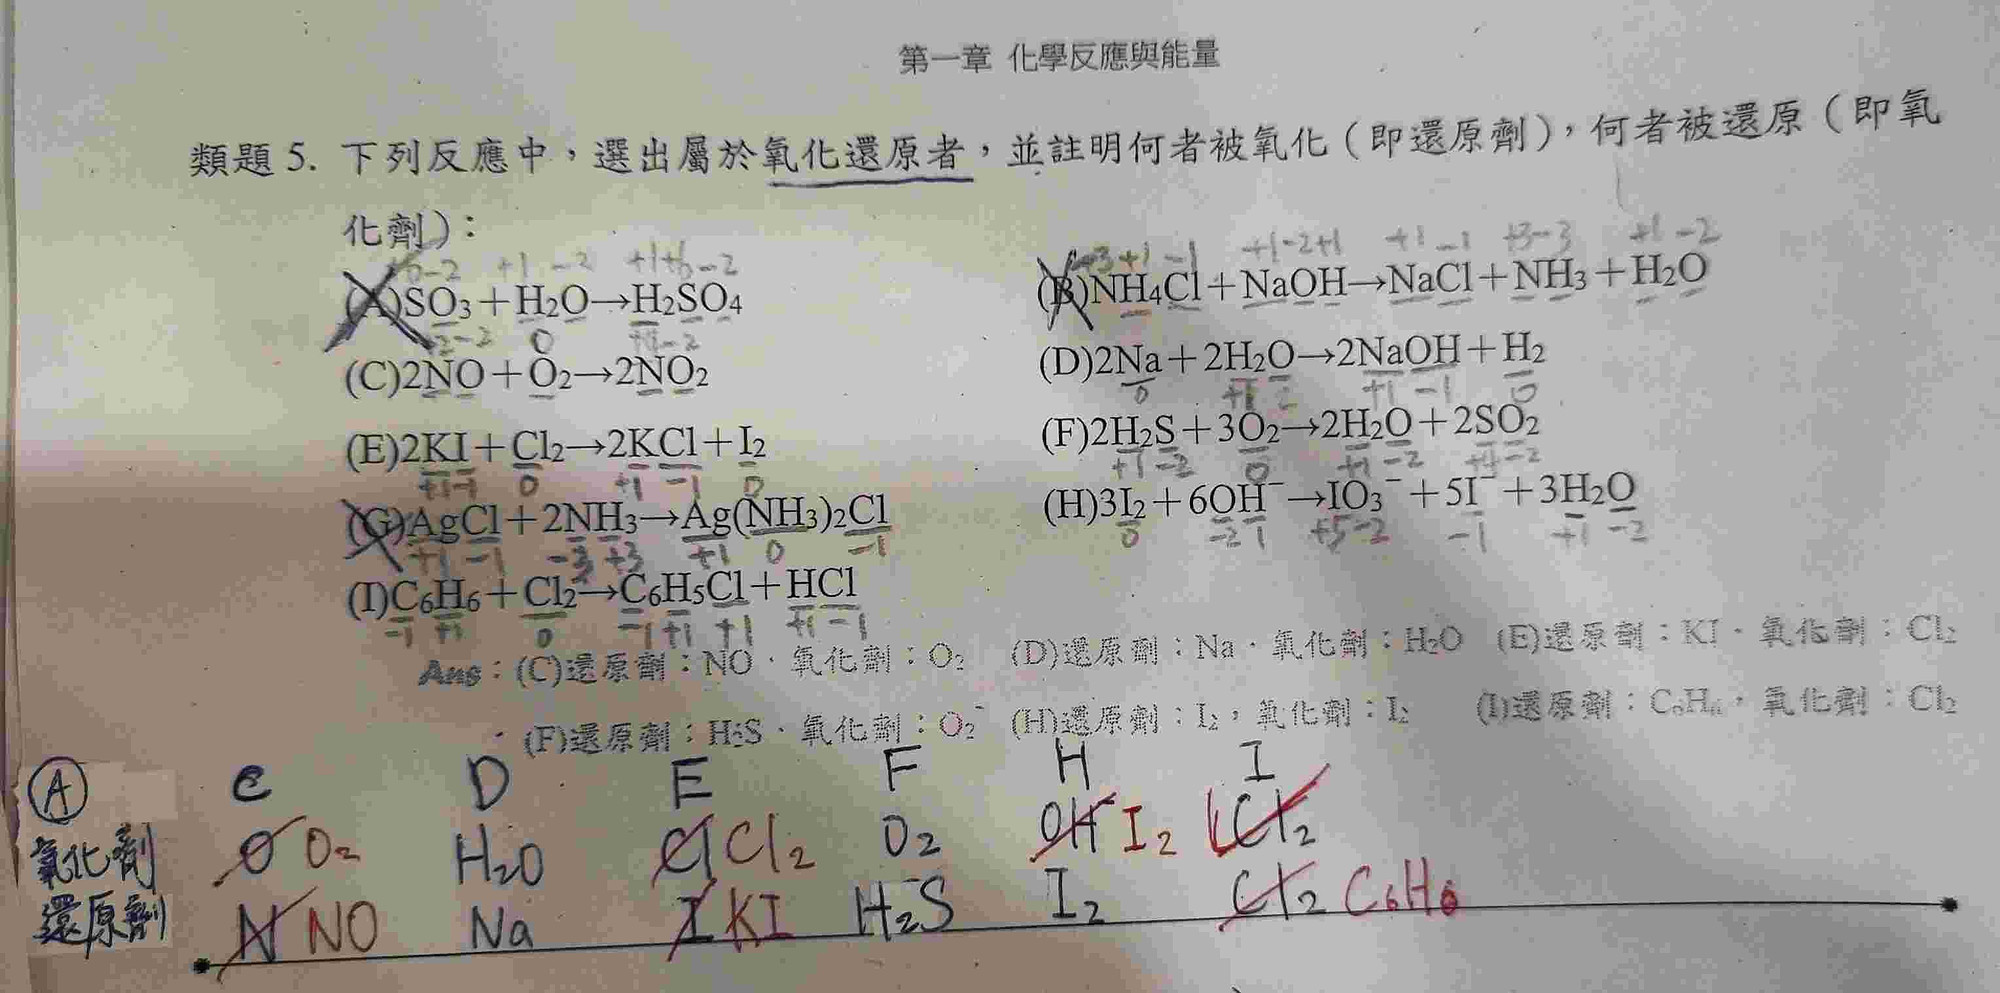 第一章 化學反應與能量
類題 5. 下列反應中，選出屬於氧化還原者，並註明何者被氧化（即還原劑），何者被還原（即氧
化劑）：
+6-2 +1 -2 +1+6-2
-3+1 -1 +1-2+1 +1 -1 +3-3 +1 -2
(A)SO₃+H₂O→H₂SO₄ (B)NH₄Cl+NaOH→NaCl+NH₃+H₂O
+2-2 0 +4-2
(C)2NO+O₂→2NO₂ (D)2Na+2H₂O→2NaOH+H₂
0 +1 +1 -1 0
(E)2KI+Cl₂→2KCl+I₂ (F)2H₂S+3O₂→2H₂O+2SO₂
+1-1 0 +1 -1 0 +1-2 0 +1-2 +4-2
(G)AgCl+2NH₃→Ag(NH₃)₂Cl (H)3I₂+6OH⁻→IO₃⁻+5I⁻+3H₂O
+1 -1 -3 +3 +1 0 -1 0 -2 1 +5-2 -1 +1 -2
(I)C₆H₆+Cl₂→C₆H₅Cl+HCl
-1 +1 0 -1 +1 +1 +1 -1
Ans：(C)還原劑：NO，氧化劑：O₂ (D)還原劑：Na，氧化劑：H₂O (E)還原劑：KI，氧化劑：Cl₂
(F)還原劑：H₂S，氧化劑：O₂ (H)還原劑：I₂，氧化劑：I₂ (I)還原劑：C₆H₆，氧化劑：Cl₂
Ⓐ C D E F H I
氧化劑 O O₂ H₂O Cl Cl₂ O₂ OH⁻ I₂ Cl₂
還原劑 N NO Na I KI H₂S I₂ Cl₂ C₆H₆